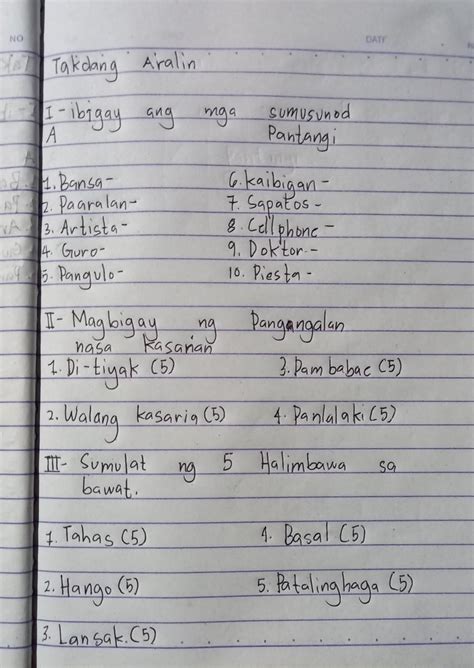 NO
DATE
Takdang Aralin
I - ibigay ang mga sumusunod
A Pantangi
1. Bansa - 6. kaibigan -
2. Paaralan - 7. Sapatos -
3. Artista - 8. Cellphone -
4. Guro - 9. Doktor. -
5. Pangulo - 10. Piesta -
II - Magbigay ng Pangangalan
nasa kasarian
1. Di-tiyak (5) 3. Pambabae (5)
2. Walang kasaria (5) 4. Panlalaki (5)
III - Sumulat ng 5 Halimbawa sa
bawat.
1. Tahas (5) 4. Basal (5)
2. Hango (5) 5. Patalinghaga (5)
3. Lansak. (5)